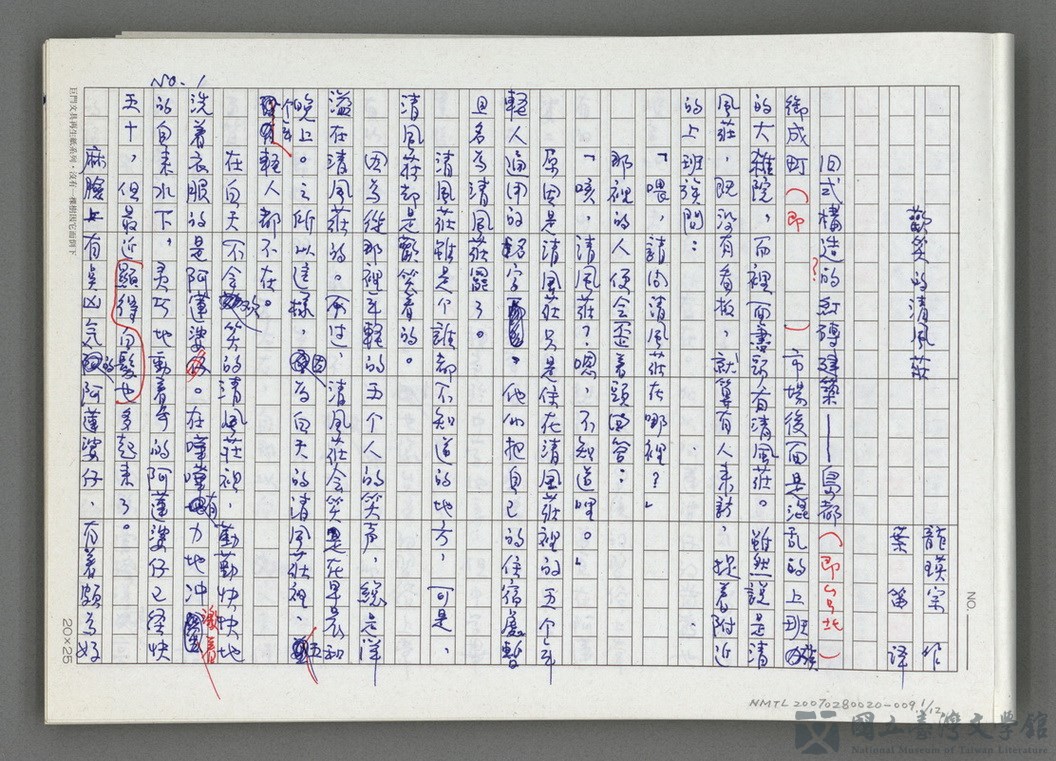 歡笑的清風莊
龍瑛宗 作
葉笛 译
旧式構造的紅磚建築——島都（即台北）
御成町（即　　？　）市場後面是混乱的上班族
的大雜院，而裡面書説有清風莊。雖然說是清
風莊，既没有看板，就算有人来訪，捉着附近
的上班族問：
「喂，請問清風莊在哪裡？」
那裡的人便会歪着頭回答：
「咦，清風莊？嗯，不知道哩。」
原因是清風莊只是住在清風莊裡的五个年
輕人通用的名字。他们把自己的住宿處暫
且名為清風莊罷了。
清風莊雖是个誰都不知道的地方，可是，
清風莊却是歡笑着的。
因為從那裡年輕的五个人的笑声，総是洋
溢在清風莊的。不过，清風莊会笑是在早晨和
晚上。之所以這樣，因為白天的清風莊裡，五
个年輕人都不在。
在白天不会欢笑的清風莊裡，勤勤快快地
洗着衣服的是阿蓮婆。在嘩嘩有力地冲激着
的自来水下，灵巧地動着手的阿蓮婆仔已経快
五十，但最近顯得白髮也多起来了。
麻臉上有点凶气的阿蓮婆仔，有着頗為好
NO. 1
NO.
20×25
巨門文具再生紙系列・沒有一棵樹因它而倒下
NMTL 20070280020-009 1/12
國立臺灣文學館
National Museum of Taiwan Literature